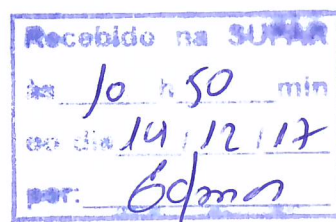 Recebido na SUPAR
às 10 h 50 min
do dia 14 / 12 / 17
por: